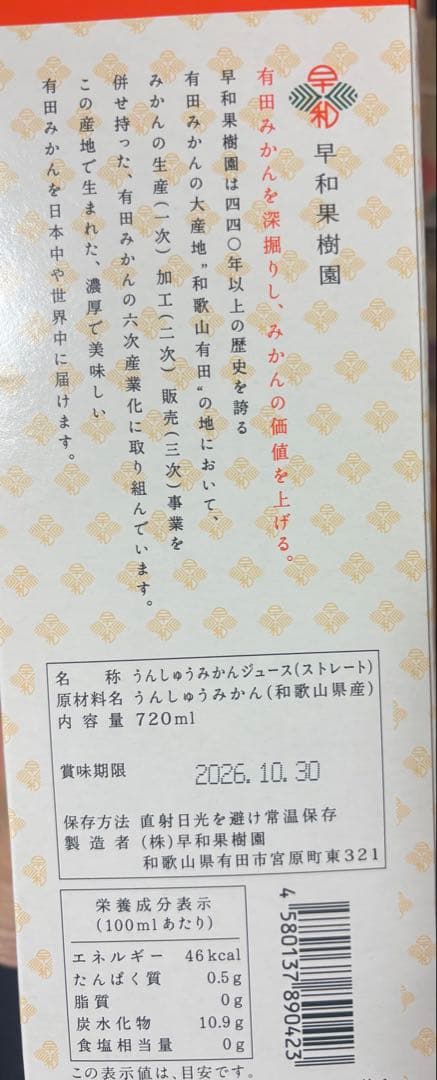 早和
早和果樹園
有田みかんを深掘りし、みかんの価値を上げる。
早和果樹園は四四〇年以上の歴史を誇る
有田みかんの大産地〝和歌山有田〟の地において、
みかんの生産(一次)加工(二次)販売(三次)事業を
併せ持った、有田みかんの六次産業化に取り組んでいます。
この産地で生まれた、濃厚で美味しい
有田みかんを日本中や世界中に届けます。
名称 うんしゅうみかんジュース(ストレート)
原材料名 うんしゅうみかん(和歌山県産)
内容量 720ml
賞味期限 2026.10.30
保存方法 直射日光を避け常温保存
製造者 (株)早和果樹園
和歌山県有田市宮原町東321
栄養成分表示
(100mlあたり)
エネルギー 46kcal
たんぱく質 0.5g
脂質 0g
炭水化物 10.9g
食塩相当量 0g
この表示値は、目安です。
4580137890423